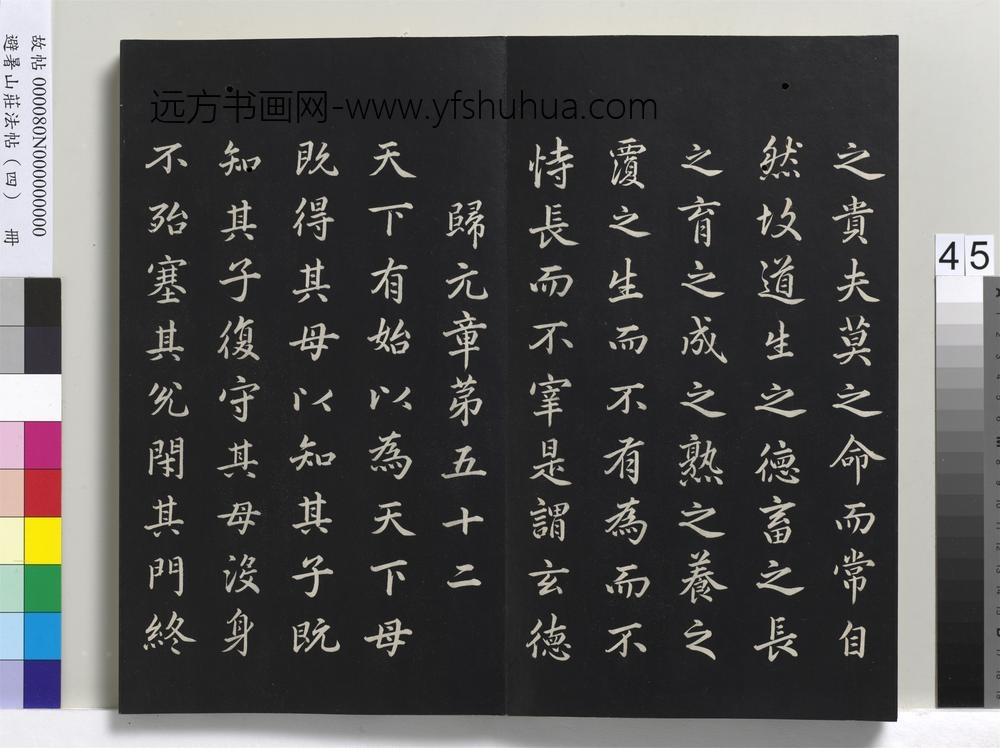 远方书画网-www.yfshuhua.com
之貴夫莫之命而常自
然故道生之德畜之長
之育之成之熟之養之
覆之生而不有為而不
恃長而不宰是謂玄德
歸元章第五十二
天下有始以為天下母
既得其母以知其子既
知其子復守其母沒身
不殆塞其兌閉其門終
故帖 000080N000000000
避暑山莊法帖（四） 冊
45